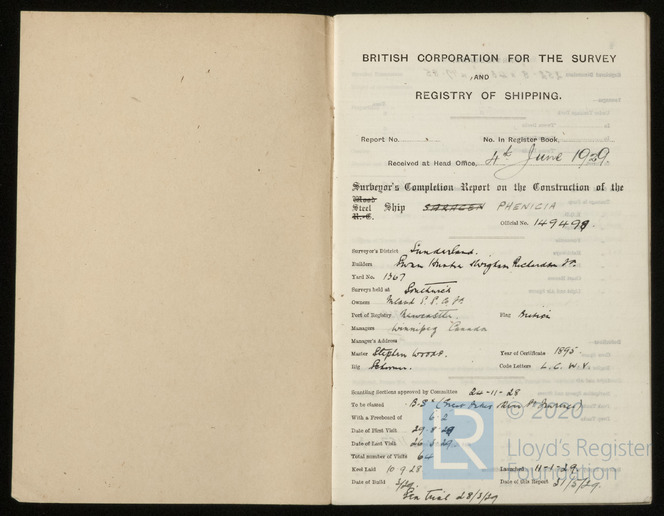 BRITISH CORPORATION FOR THE SURVEY
AND
REGISTRY OF SHIPPING.
Report No. No. in Register Book,
Received at Head Office, 4th June 1929.
Surveyor's Completion Report on the Construction of the
Wood
Steel Ship SARACEN PHENICIA
Official No. 149498
Surveyor's District Sunderland.
Builders Swan Hunter Wigham Richardson
Yard No. 1367
Surveys held at Southwick
Owners Inland
Port of Registry Newcastle. Flag British
Managers Winnipeg Canada
Manager's Address
Master Stephen Woods. Year of Certificate 1895
Rig Schooner. Code Letters L.C.W.V.
Scantling Sections approved by Committee 24-11-28
To be classed B.S*
With a Freeboard of 6-2
Date of First Visit 29.8.28
Date of Last Visit 26.3.29.
Total number of Visits 64
Keel Laid 10.9.28 Launched 11-1-29.
Date of Build 3/29. Date of this Report 31/5/29.
Sea Trial 28/3/29
© 2020
LR
Lloyd's Register
Foundation